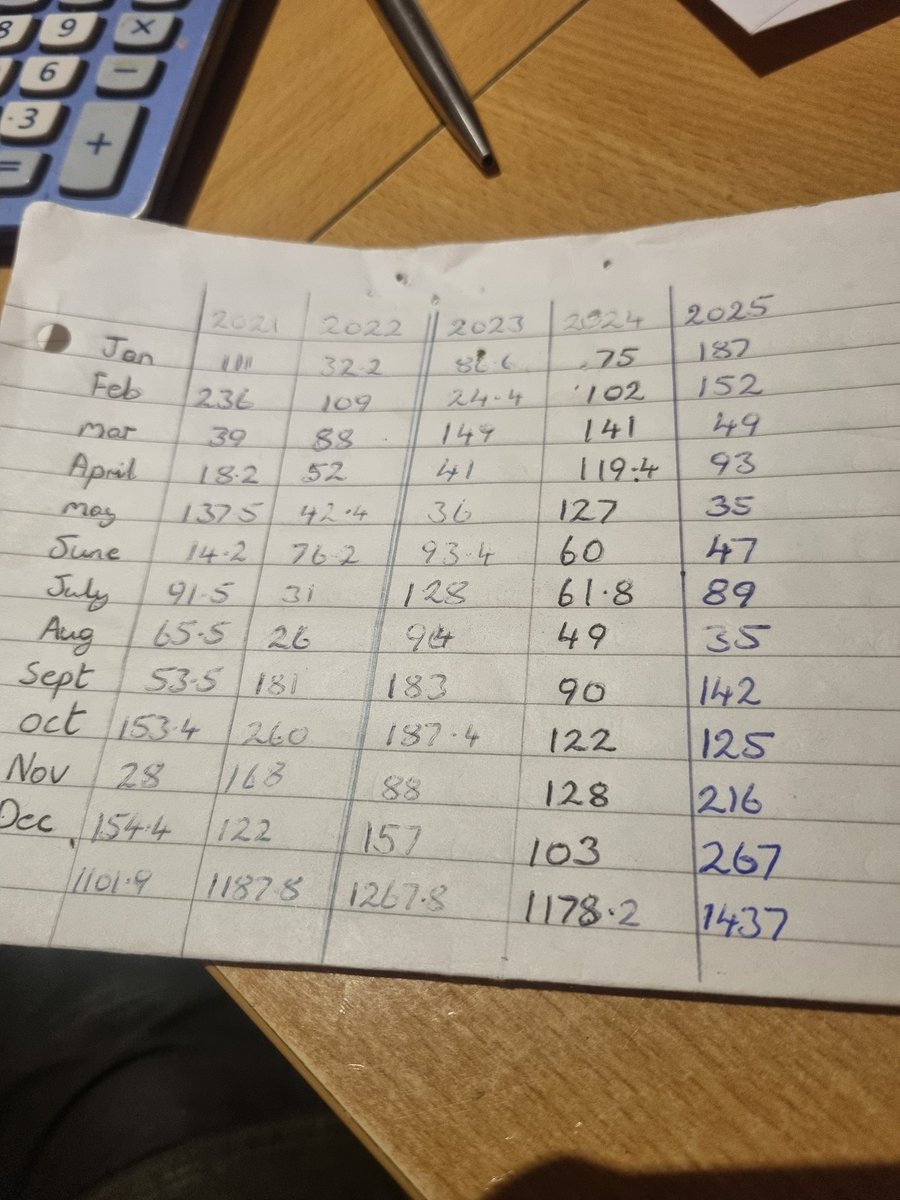 8 9 ×
6 −
· 3 +
=
2021 2022 2023 2024 2025
Jan 111 32.2 86.6 75 187
Feb 236 109 24.4 102 152
Mar 39 88 149 141 49
April 18.2 52 41 119.4 93
May 137.5 42.4 36 127 35
June 14.2 76.2 93.4 60 47
July 91.5 31 128 61.8 89
Aug 65.5 26 94 49 35
Sept 53.5 181 183 90 142
Oct 153.4 260 187.4 122 125
Nov 28 168 88 128 216
Dec 154.4 122 157 103 267
1101.9 1187.8 1267.8 1178.2 1437